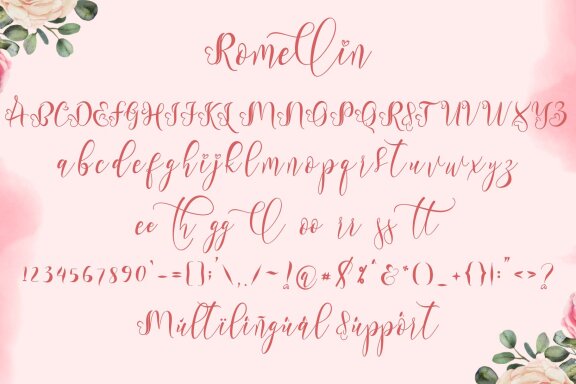 Romellin
ABCDEFGHIJKLMNOPQRSTUVWXYZ
abcdefghijklmnopqrstuvwxyz
ee th gg ll oo rr ss tt
1234567890`-=[];'\,./~!@#$%^&*()_+{}|:"<>?
Múltilíñgúál Súppórt